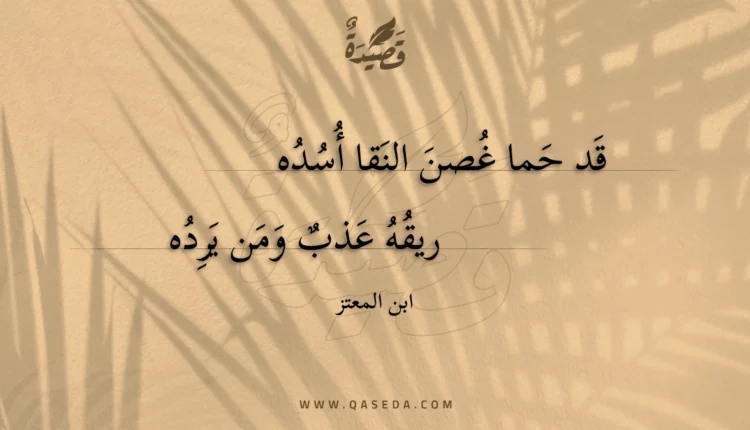 قَصِيْدَةٌ
قَد حَما غُصنَ النَقا أُسُدُه
ريقُهُ عَذبٌ وَمَن يَرِدُه
ابن المعتز
WWW.QASEDA.COM